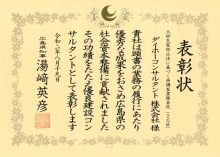 表彰状
ダイホーコンサルタント株式会社 様
貴社は頭書の業務の履行にあたり
優秀な成果をおさめ広島県の
社会資本整備に貢献されました
その功績をたたえ優良建設コン
サルタントとして表彰します
令和二年八月十九日
広島県知事 湯﨑英彦